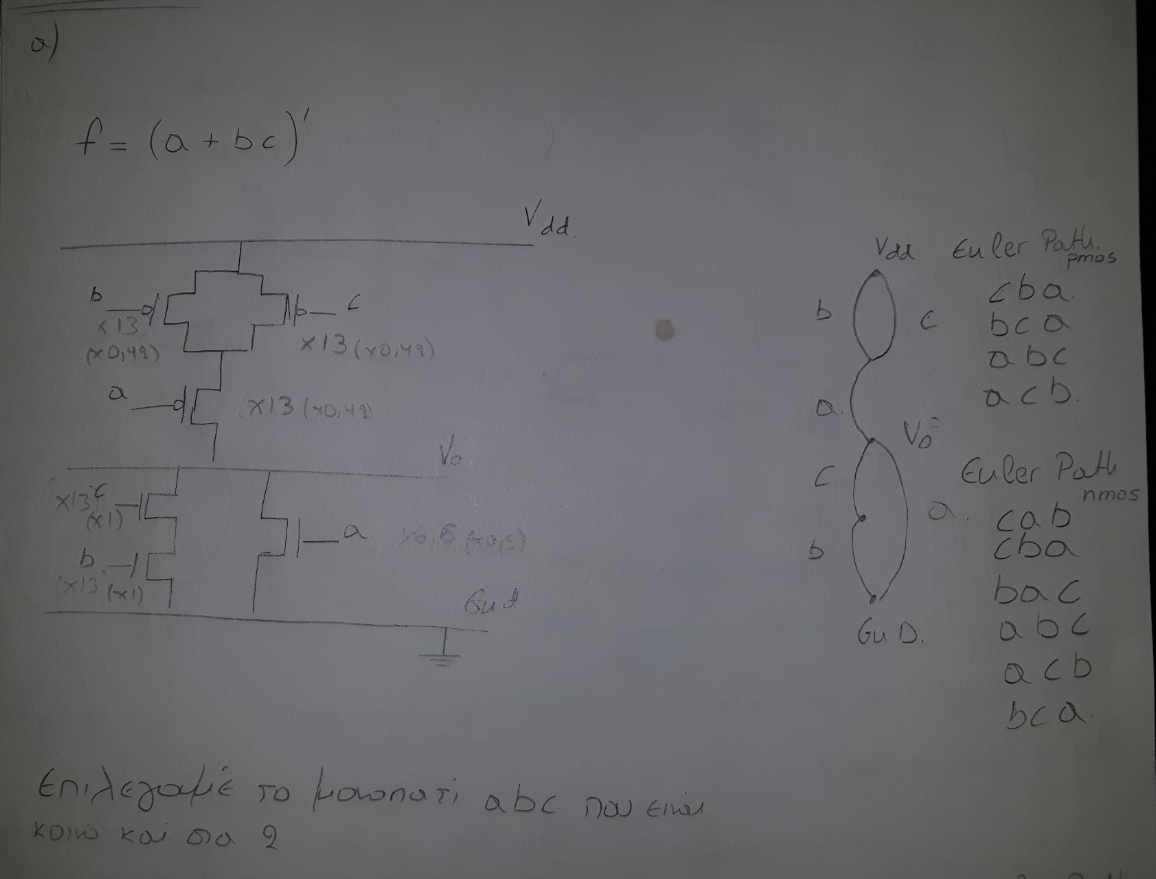 a)
f = (a + bc)'
Vdd.
b
x13
(x0,49)
c
x13 (x0,49)
a
x13 (x0,49)
Vo
x13 c
(x1)
b
(x13 (x1)
a
Gnd
Vdd
b
c
a.
Vo
c
a.
b
GnD.
Euler Path.
pmos
cba.
bca
abc
acb.
Euler Path
nmos
cab
cba
bac
abc
acb
bca.
Επιλεγουμε το μονοπατι abc που ειναι
κοινο και στα 2